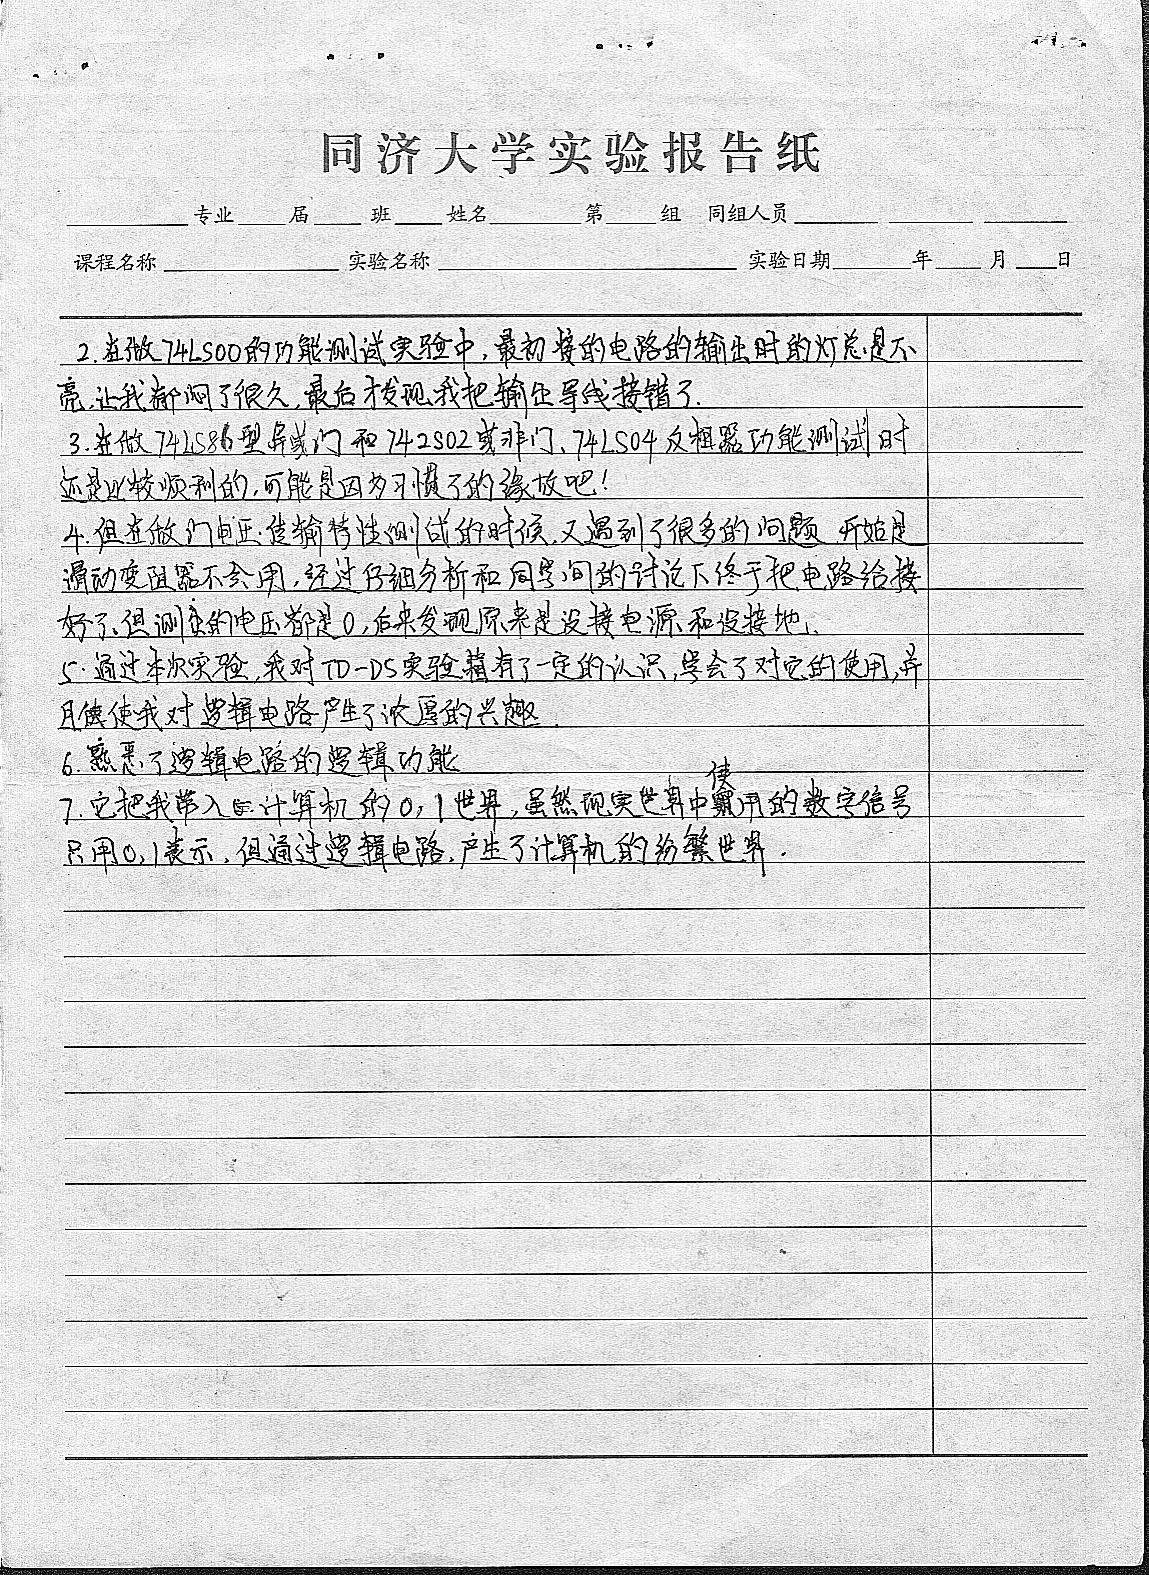 同济大学实验报告纸
专业 届 班 姓名 第 组 同组人员
课程名称 实验名称 实验日期 年 月 日
2.在做74LS00的功能测试实验中,最初接的电路的输出时的灯总是不
亮,让我郁闷了很久,最后才发现我把输出导线接错了.
3.在做74LS86型异或门和742S02或非门、74LS04反相器功能测试时
还是比较顺利的,可能是因为习惯了的缘故吧!
4.但在做门电压传输特性测试的时候,又遇到了很多的问题 开始是
滑动变阻器不会用,经过仔细分析和同学间的讨论下终于把电路给接
好了、但测定的电压都是0,后来发现原来是没接电源和没接地、
5.通过本次实验,我对TD-DS实验箱有了一定的认识,学会了对它的使用,并
且促使我对逻辑电路产生了浓厚的兴趣.
6.熟悉了逻辑电路的逻辑功能
7.它把我带入计算机的0,1世界,虽然现实世界中使用的数字信号
只用0,1表示,但通过逻辑电路,产生了计算机的纷繁世界.